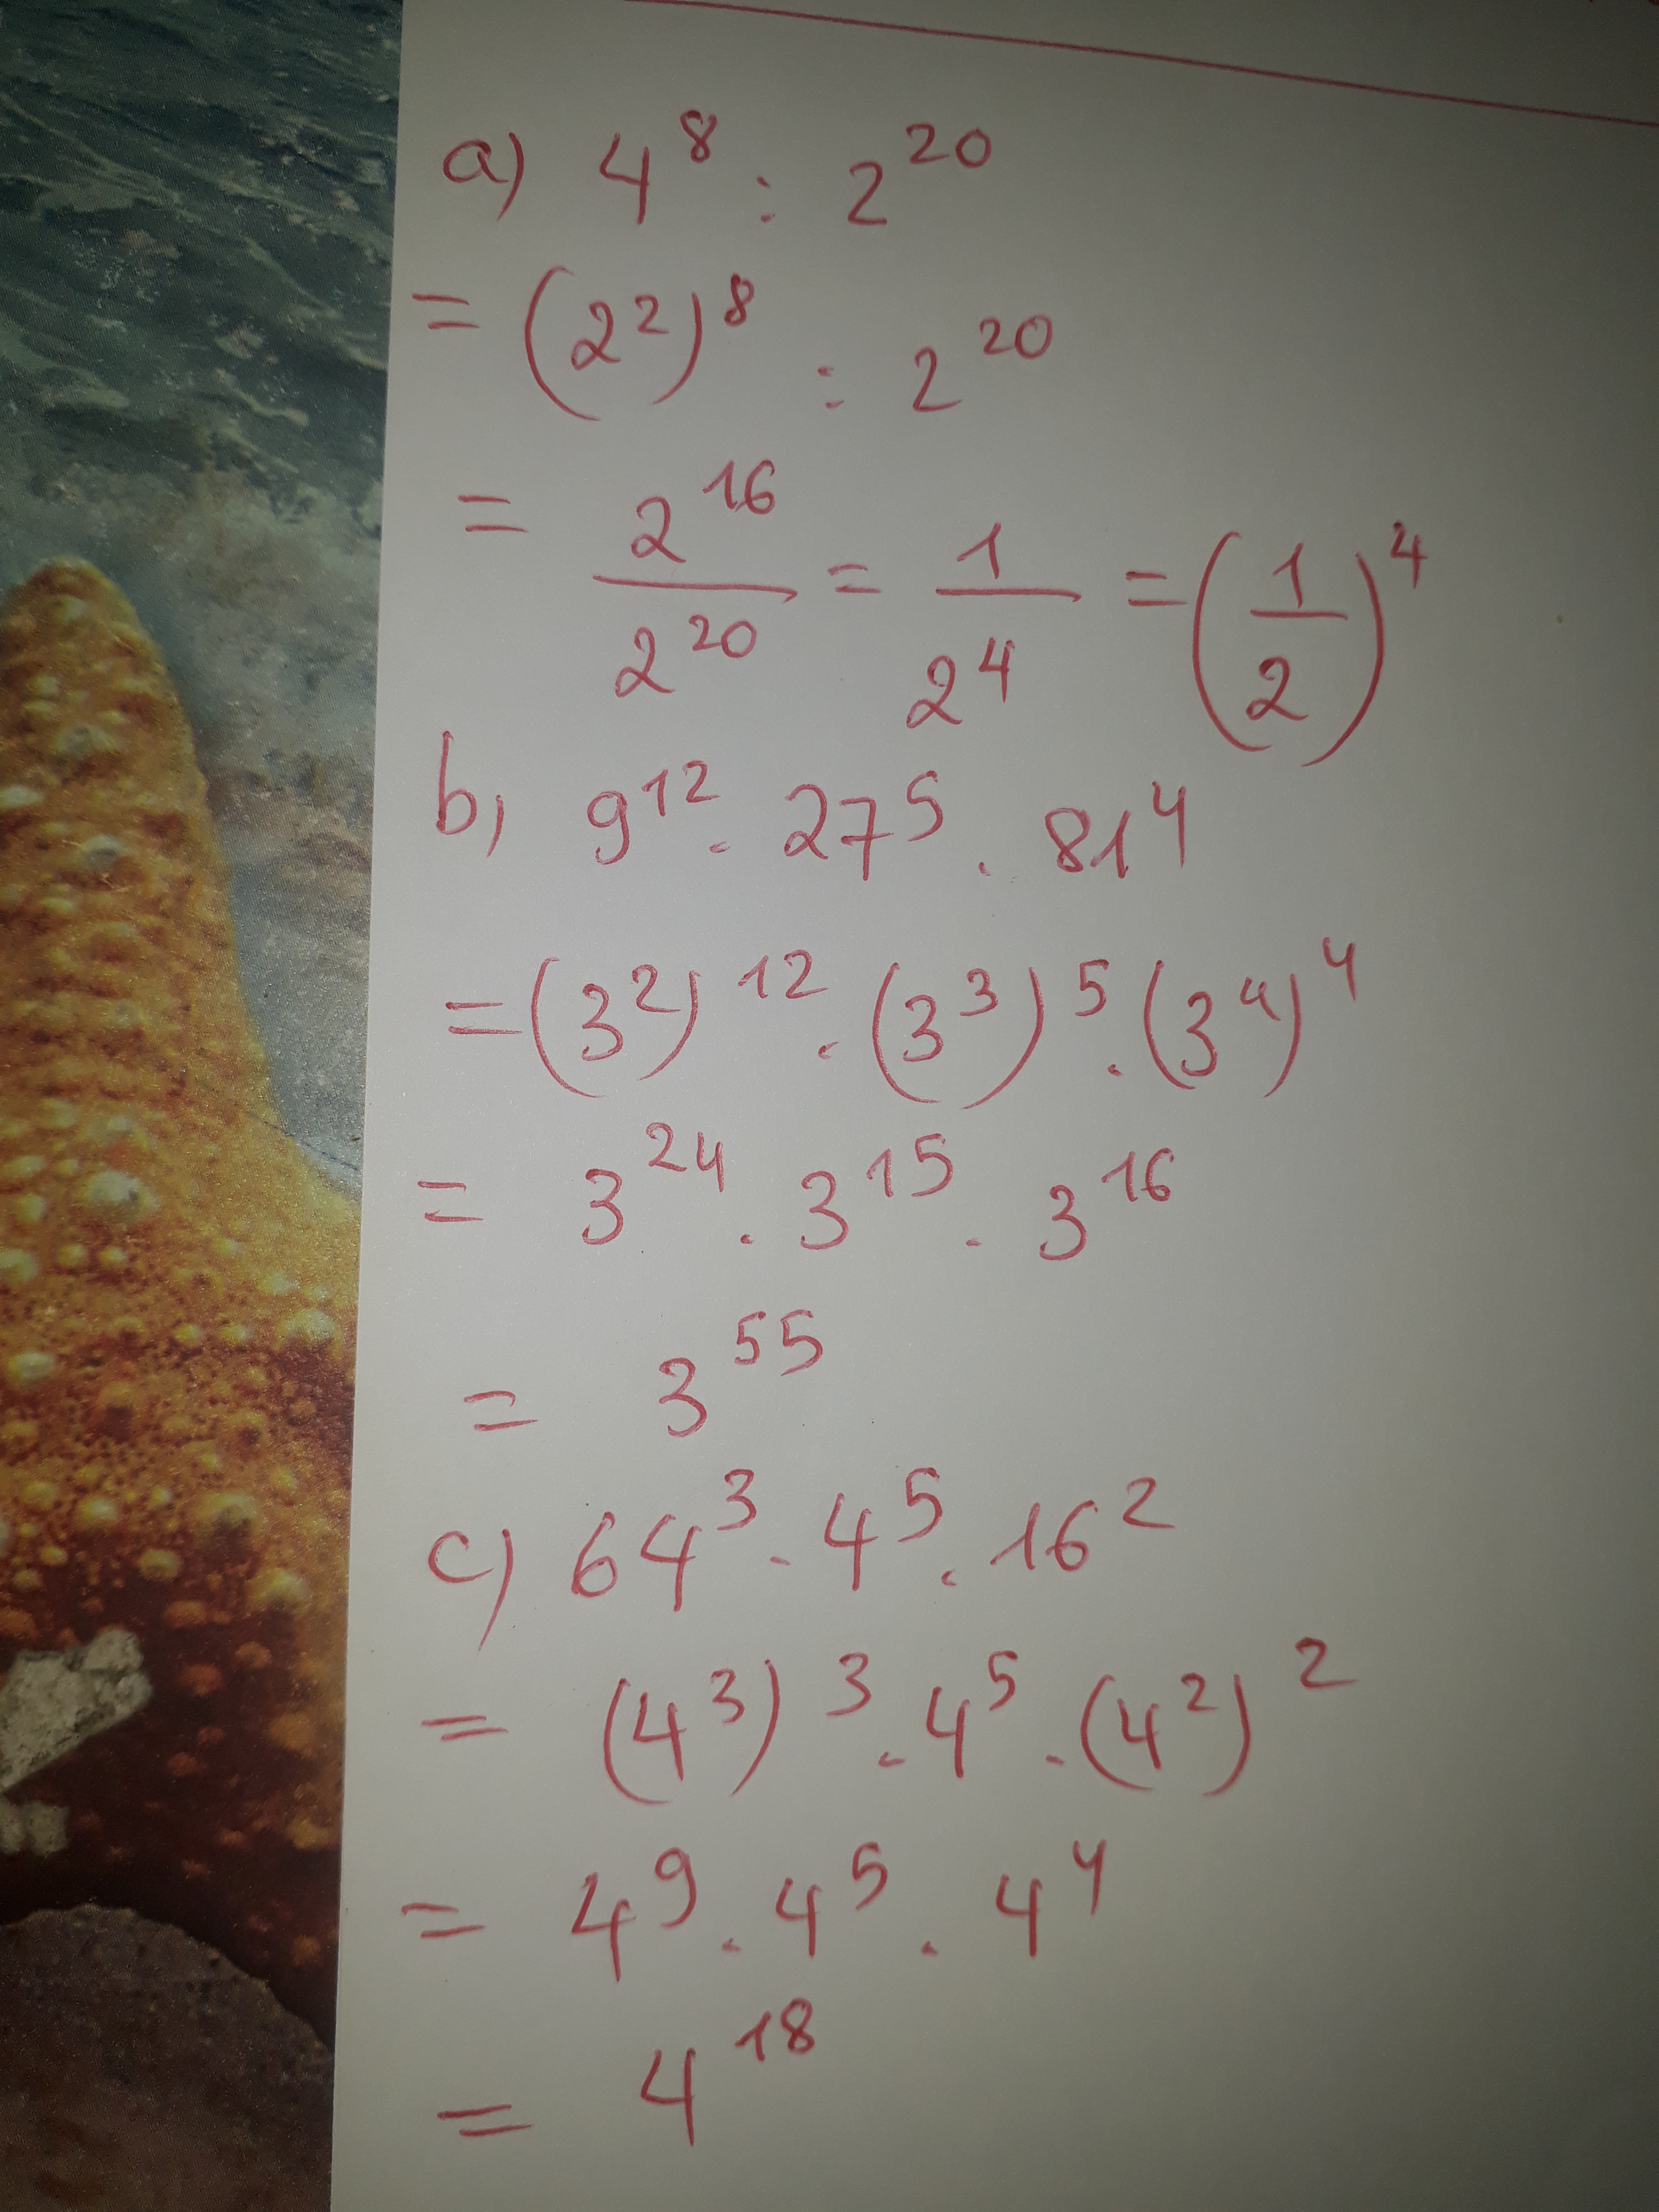 a) 4^8 : 2^20
= (2^2)^8 : 2^20
= 2^16/2^20 = 1/2^4 = (1/2)^4
b, 9^12 . 27^5 . 81^4
= (3^2)^12 . (3^3)^5 . (3^4)^4
= 3^24 . 3^15 . 3^16
= 3^55
c) 64^3 . 4^5 . 16^2
= (4^3)^3 . 4^5 . (4^2)^2
= 4^9 . 4^5 . 4^4
= 4^18